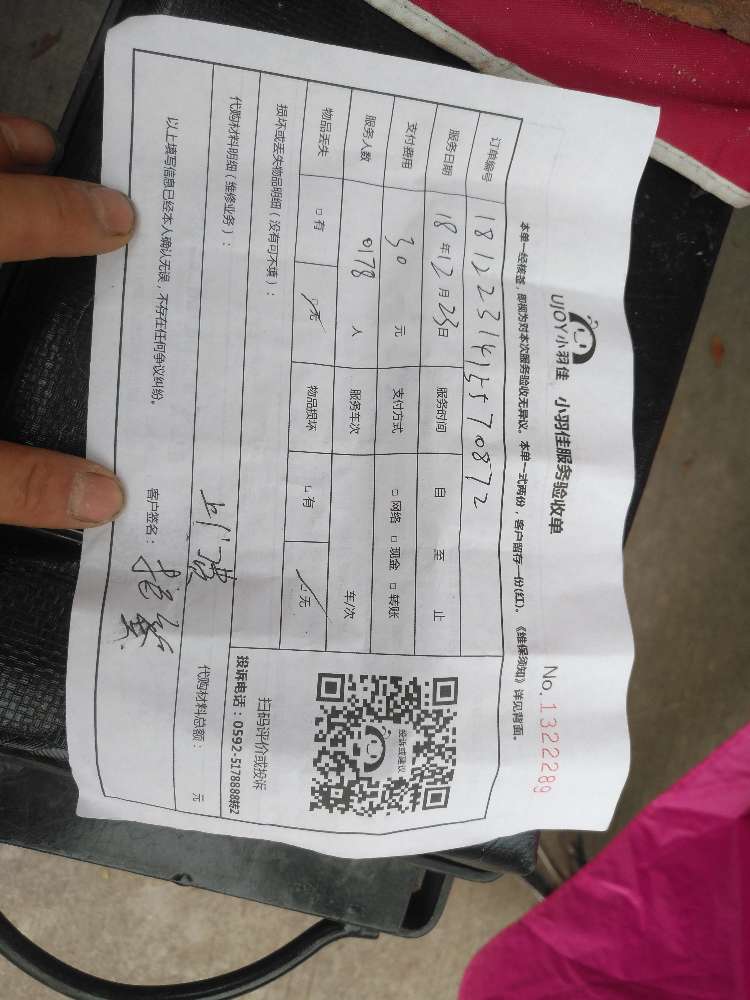 UJOY小羽佳 小羽佳服务验收单
No.1322289
本单一经核签，即视为对本次服务验收无异议。本单一式两份，客户留存一份(红)，《维保须知》详见背面。
订单编号 1812231415570872
服务日期 18年12月23日 服务时间 自 至 止
支付费用 30 元 支付方式 □网络 □现金 □转账
服务人数 0178 人 服务车次 车/次
物品丢失 □有 □无 物品损坏 □有 □无
损坏或丢失物品明细（没有可不填）：
投诉或建议
扫码评价或投诉
投诉电话：0592-5178888转2
代购材料明细（维修业务）：
代购材料总额： 元
以上填写信息已经本人确认无误，不存在任何争议纠纷。
客户签名：